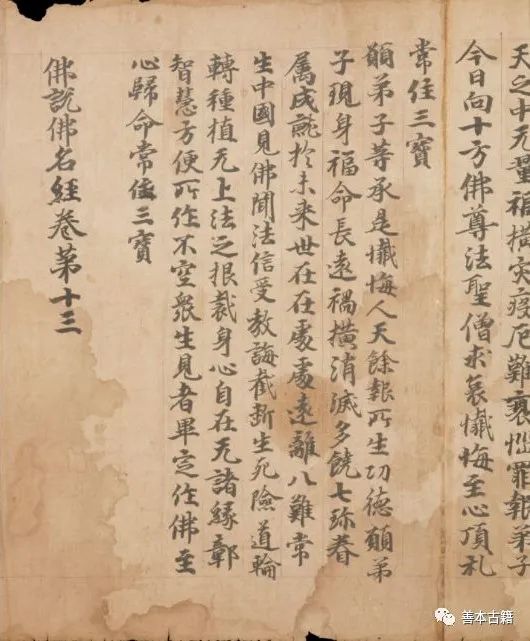 天之中无量禍橫灾疫厄難衰惱罪報弟子
今日向十方佛尊法聖僧求哀懺悔至心頂礼
常住三寶
願弟子等承是懺悔人天餘報所生功德願弟
子現身福命長遠禍橫消滅多饒七珎眷
属成就於未来世在在處處遠離八難常
生中國見佛聞法信受教誨截斷生死險道輪
轉種植无上法之根栽身心自在无諸緣鄣
智慧方便所作不空衆生見者畢定作佛至
心歸命常住三寶
佛說佛名經卷第十三
善本古籍